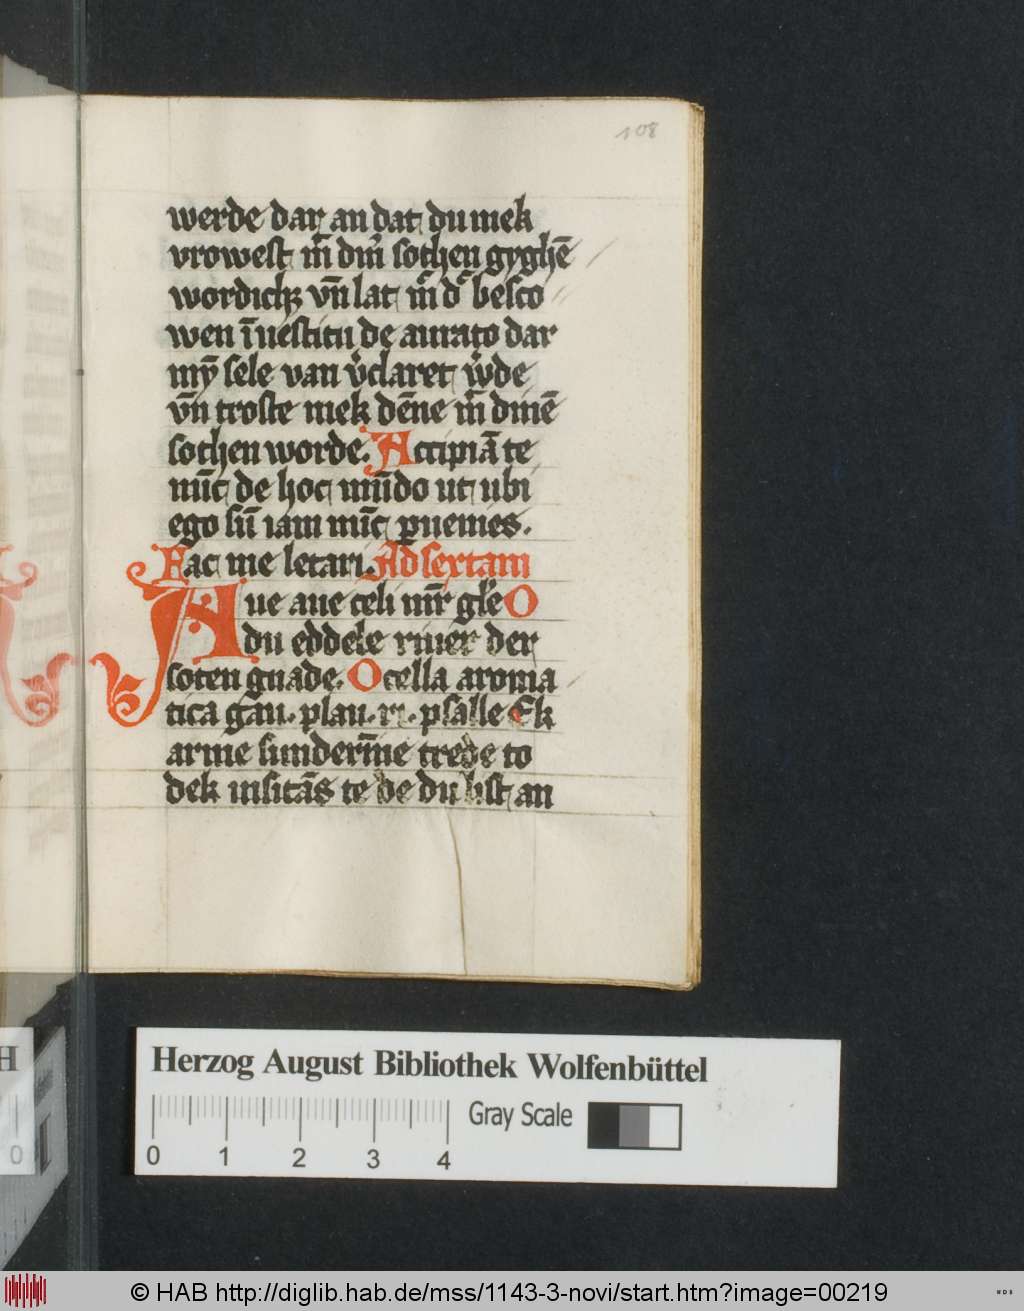 108
werde dar an dat du mek
vrowest m̄ dīn sothen gyghē
wordich vn̄ lat m̄ d' besco
wen ī uestitu de aurato dar
mȳ sele van v̓claret w̓de
vn̄ troste mek dēne m̄ dinē
sothen worde. Accipiā te
nūc de hoc mūdo ut ubi
ego sū iam mūc
Fac me letari. Ad sextam
Aue aue celi
O
du eddele riuer der
soten gnade. O cella aroma
tica gau. plau. ri. psalle Ek
arme sunderīne trede to
dek insitās te de du bist an
Herzog August Bibliothek Wolfenbüttel
Gray Scale
0 1 2 3 4
© HAB http://diglib.hab.de/mss/1143-3-novi/start.htm?image=00219